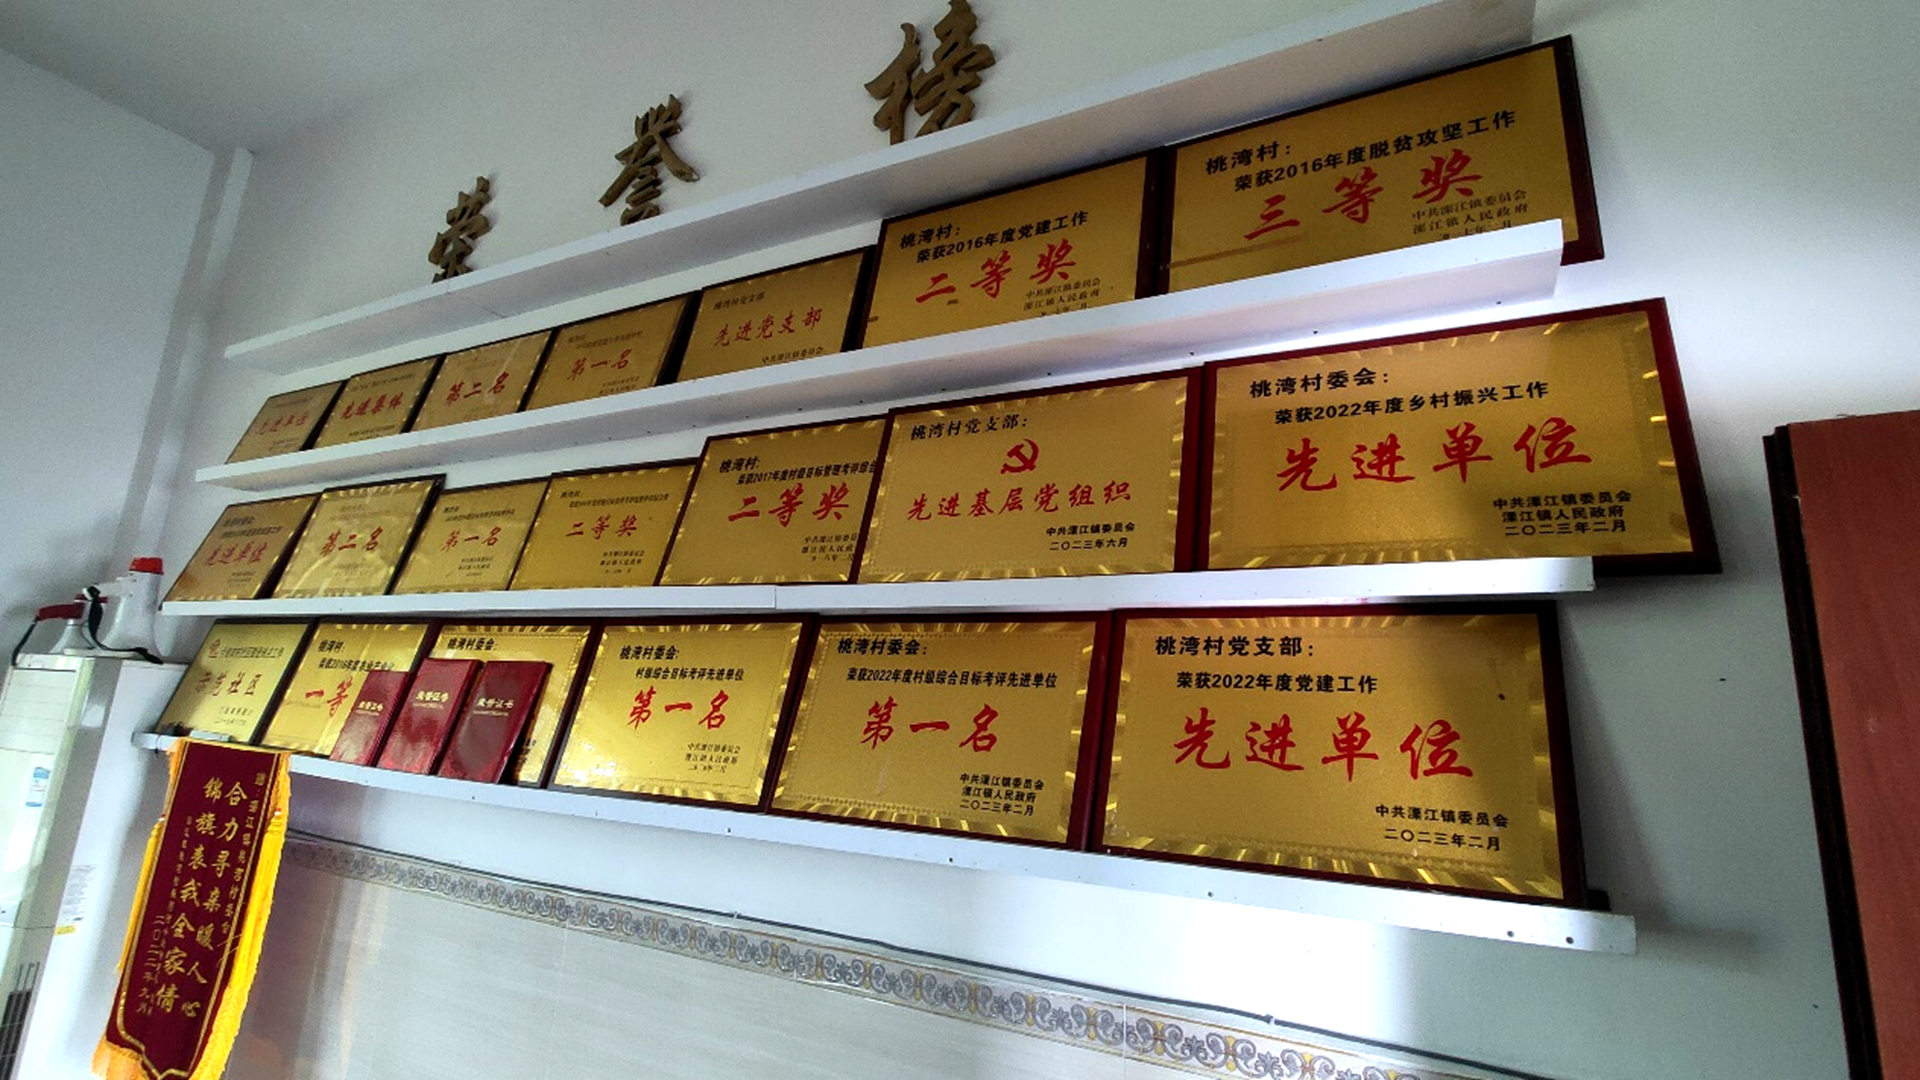 荣誉榜
先进单位
先进集体
第二名
第一名
桃湾村党支部
先进党支部
中共溧江镇委员会
桃湾村：
荣获2016年度党建工作
二等奖
中共溧江镇委员会
溧江镇人民政府
桃湾村：
荣获2016年度脱贫攻坚工作
三等奖
中共溧江镇委员会
溧江镇人民政府
先进单位
第二名
第一名
二等奖
桃湾村：
荣获2017年度村级目标管理考评综合
二等奖
桃湾村党支部：
先进基层党组织
中共溧江镇委员会
二〇二三年六月
桃湾村委会：
荣获2022年度乡村振兴工作
先进单位
中共溧江镇委员会
溧江镇人民政府
二〇二三年二月
示范社区
桃湾村：
荣获2016年度
一等
荣誉证书
荣誉证书
荣誉证书
桃湾村委会：
桃湾村委会：
村级综合目标考评先进单位
第一名
中共溧江镇委员会
溧江镇人民政府
桃湾村委会：
荣获2022年度村级综合目标考评先进单位
第一名
中共溧江镇委员会
溧江镇人民政府
二〇二三年二月
桃湾村党支部：
荣获2022年度党建工作
先进单位
中共溧江镇委员会
二〇二三年二月
合力寻亲暖人心
锦旗表我全家情